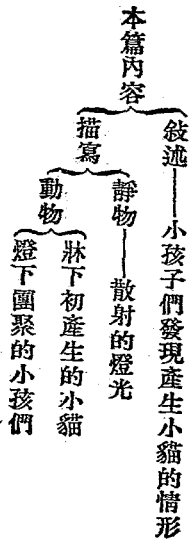 本篇內容
敍述
小孩子們發現產生小貓的情形
描寫
靜物
散射的燈光
動物
牀下初產生的小貓
燈下團聚的小孩們